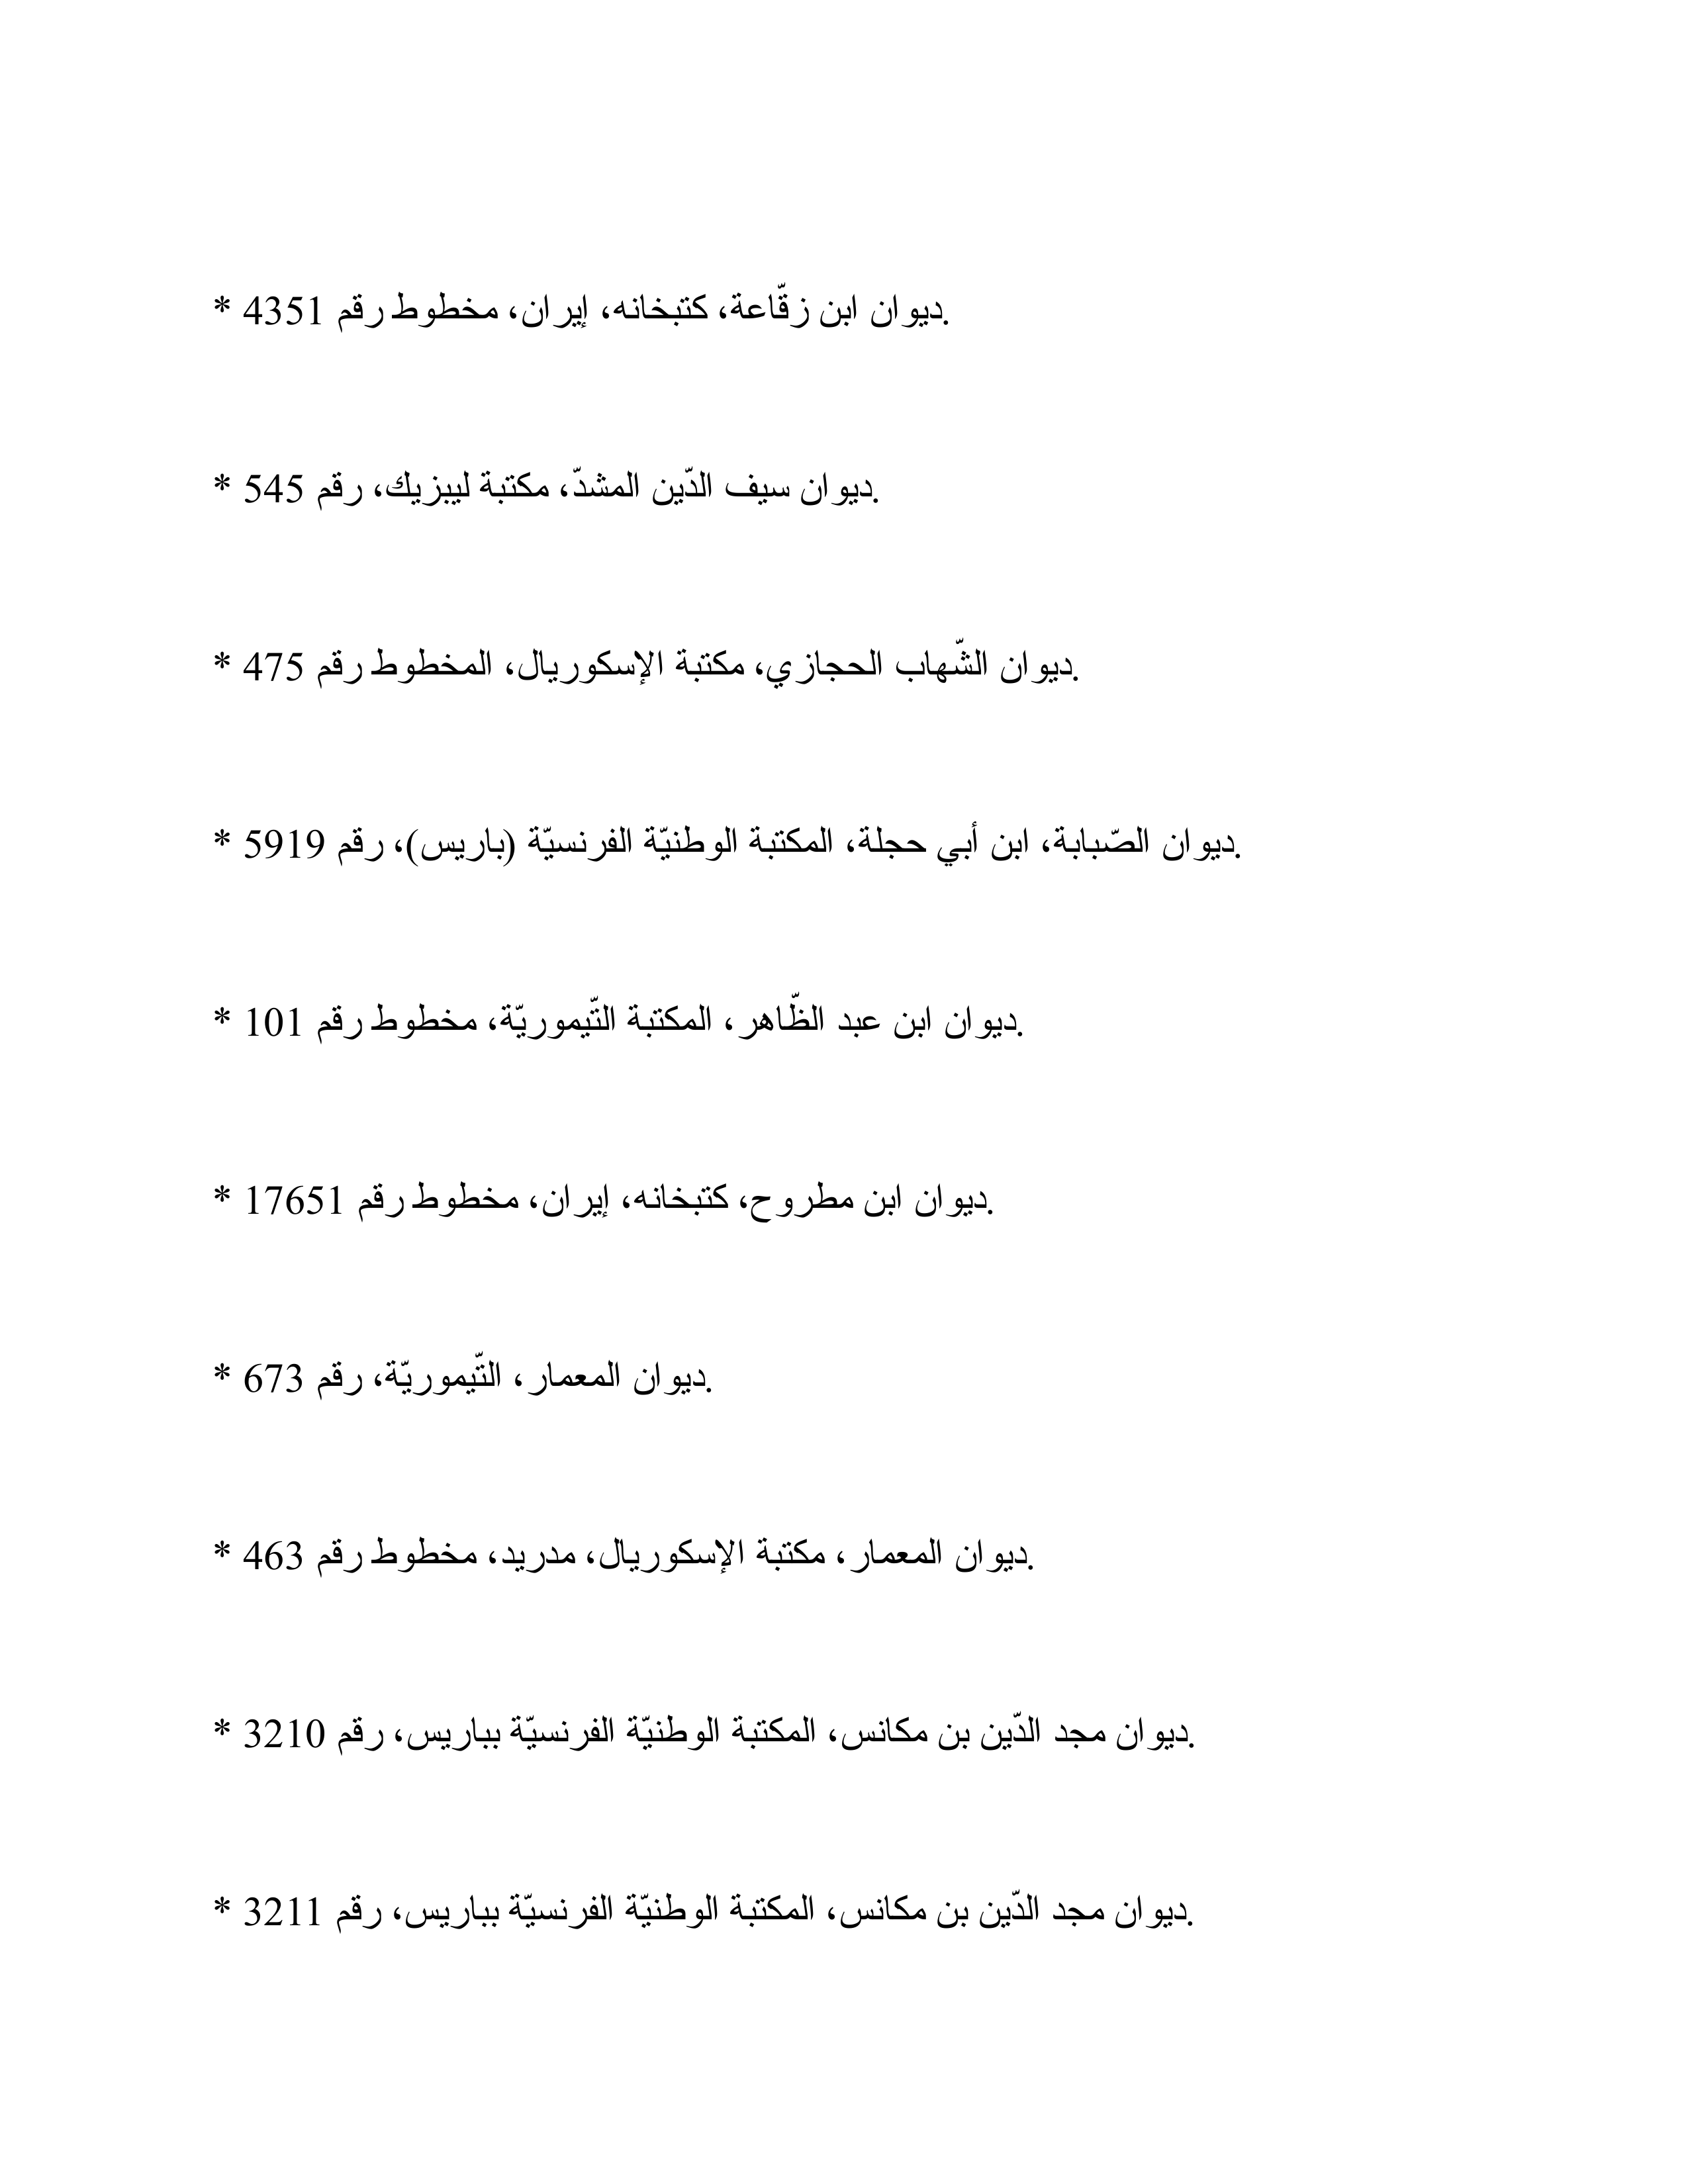 * ديوان ابن زقّاعة، كتبخانه، إيران، مخطوط رقم 4351.
* ديوان سيف الدّين المشدّ، مكتبة ليبزيك، رقم 545.
* ديوان الشّهاب الحجازي، مكتبة الإسكوريال، المخطوط رقم 475.
* ديوان الصّبابة، ابن أبي حجلة، المكتبة الوطنيّة الفرنسيّة (باريس)، رقم 5919.
* ديوان ابن عبد الظّاهر، المكتبة التّيموريّة، مخطوط رقم 101.
* ديوان ابن مطروح، كتبخانه، إيران، مخطوط رقم 17651.
* ديوان المعمار، التّيموريّة، رقم 673.
* ديوان المعمار، مكتبة الإسكوريال، مدريد، مخطوط رقم 463.
* ديوان مجد الدّين بن مكانس، المكتبة الوطنيّة الفرنسيّة بباريس، رقم 3210.
* ديوان مجد الدّين بن مكانس، المكتبة الوطنيّة الفرنسيّة بباريس، رقم 3211.